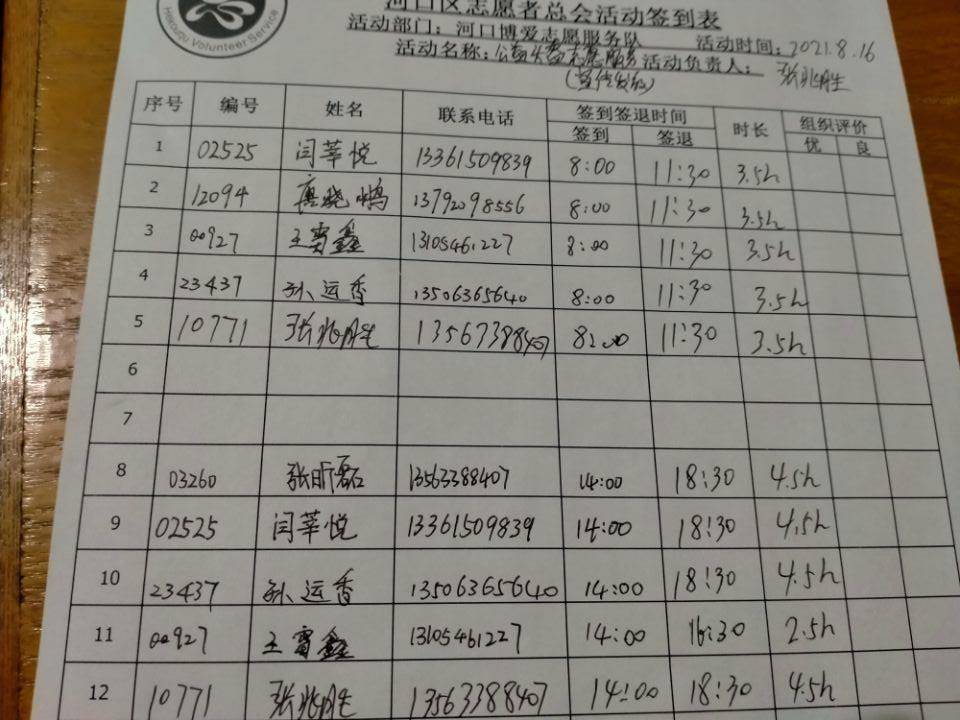 Hekouqu Volunteer Service
河口区志愿者总会活动签到表
活动部门：河口博爱志愿服务队 活动时间：2021.8.16
活动名称：公益 志愿服务 活动负责人：张兆胜
（宣传发动）
序号 编号 姓名 联系电话 签到签退时间 时长 组织评价
签到 签退 优 良
1 02525 闫莘悦 13361509839 8:00 11:30 3.5h
2 12094 唐晓鸣 13792098556 8:00 11:30 3.5h
3 00927 王寶鑫 13105461227 8:00 11:30 3.5h
4 23437 孙运香 13506365640 8:00 11:30 3.5h
5 10771 张兆胜 13563388407 8:00 11:30 3.5h
6
7
8 03260 张昕磊 13563388407 14:00 18:30 4.5h
9 02525 闫莘悦 13361509839 14:00 18:30 4.5h
10 23437 孙运香 13506365640 14:00 18:30 4.5h
11 00927 王寶鑫 13105461227 14:00 16:30 2.5h
12 10771 张兆胜 13563388407 14:00 18:30 4.5h